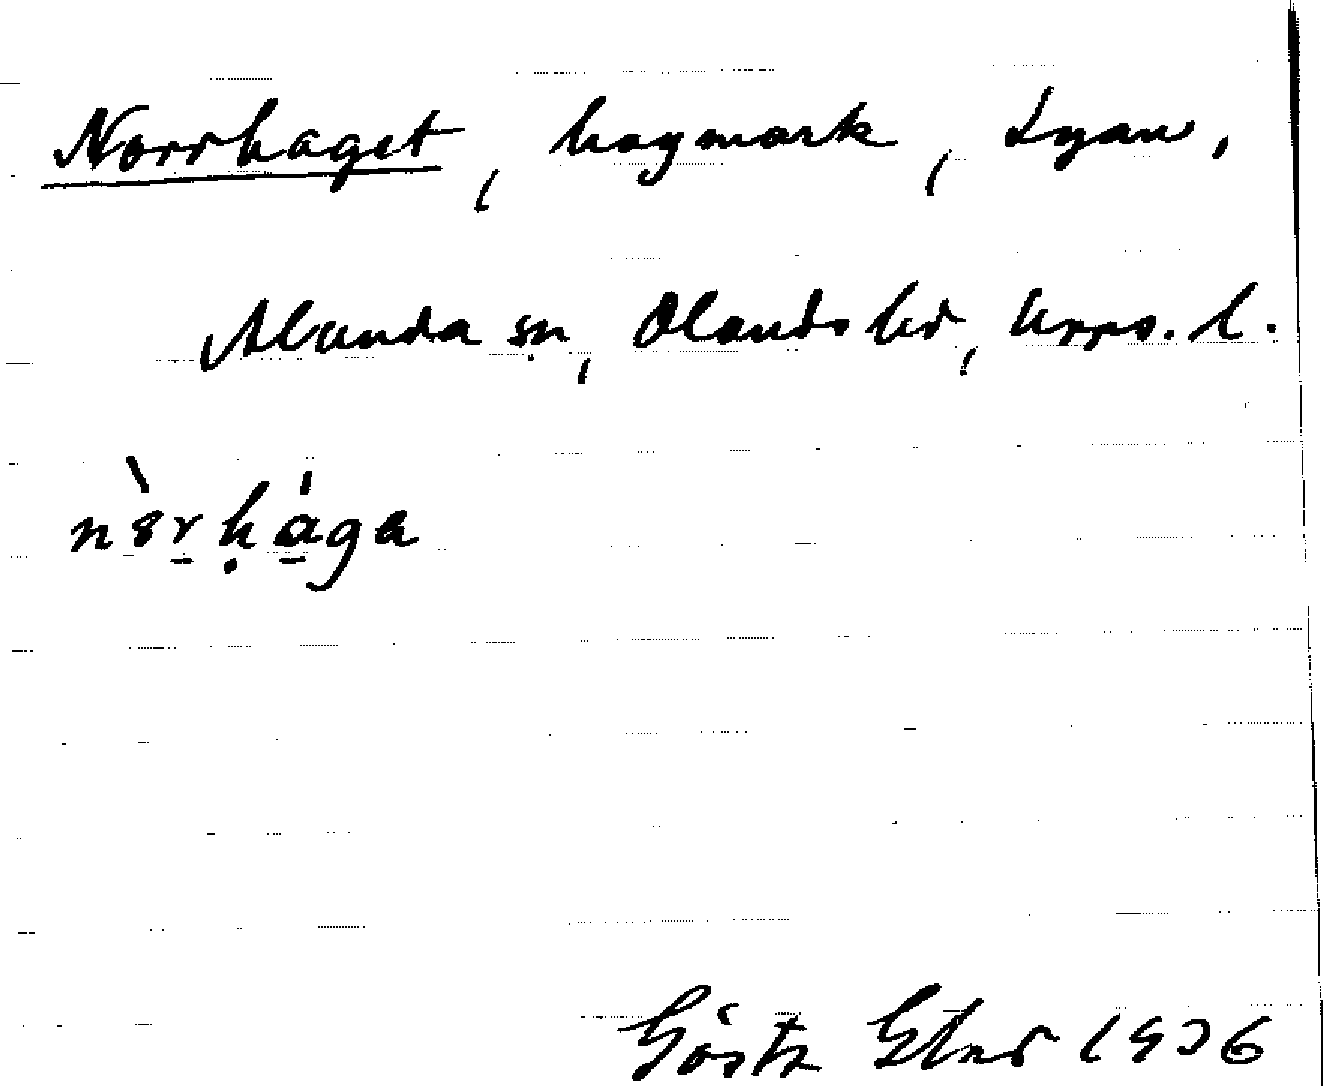 Norrhaget, hagmark, Lyan,
Alunda sn, Olands hd, Upps. l.
nòrhága
Gösta 1936